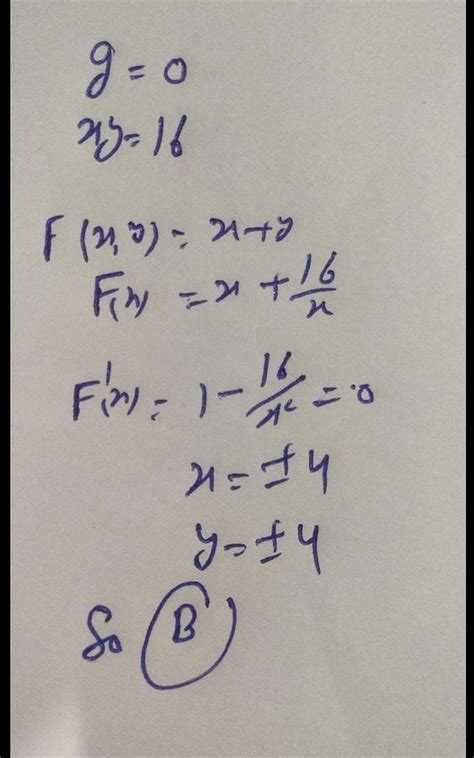 g = 0
xy = 16
F(x, y) = x + y
F(x) = x + 16/x
F'(x) = 1 - 16/x² = 0
x = ±4
y = ±4
So B